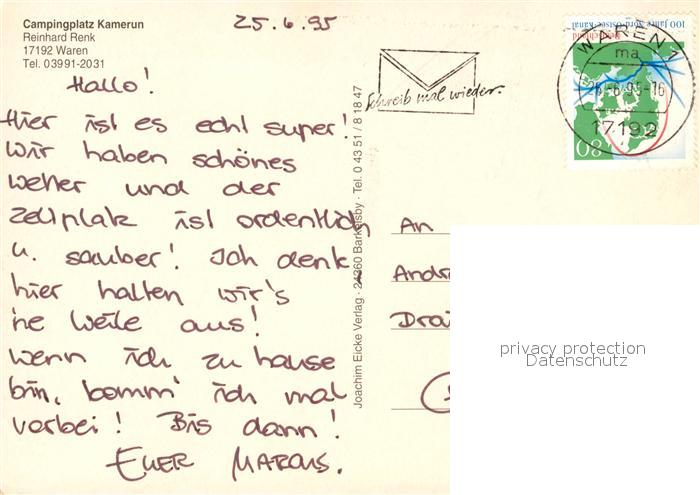 Campingplatz Kamerun
Reinhard Renk
17192 Waren
Tel. 03991-2031
25.6.95
Hallo!
Hier ist es echt super!
Wir haben schönes
Wetter und der
Zeltplatz ist ordentlich
u. sauber! Ich denk
hier halten wir's
'ne Weile aus!
Wenn ich zu hause
bin, komm' ich mal
vorbei! Bis dann!
Euer Marcus.
Joachim Eicke Verlag · 24360 Barkelsby · Tel. 0 43 51 / 8 18 47
Schreib mal wieder.
100 Jahre Nord-Ostsee-Kanal
Deutschland
80
WAREN 1
ma
-6.95-16
17192
An
privacy protection
Datenschutz